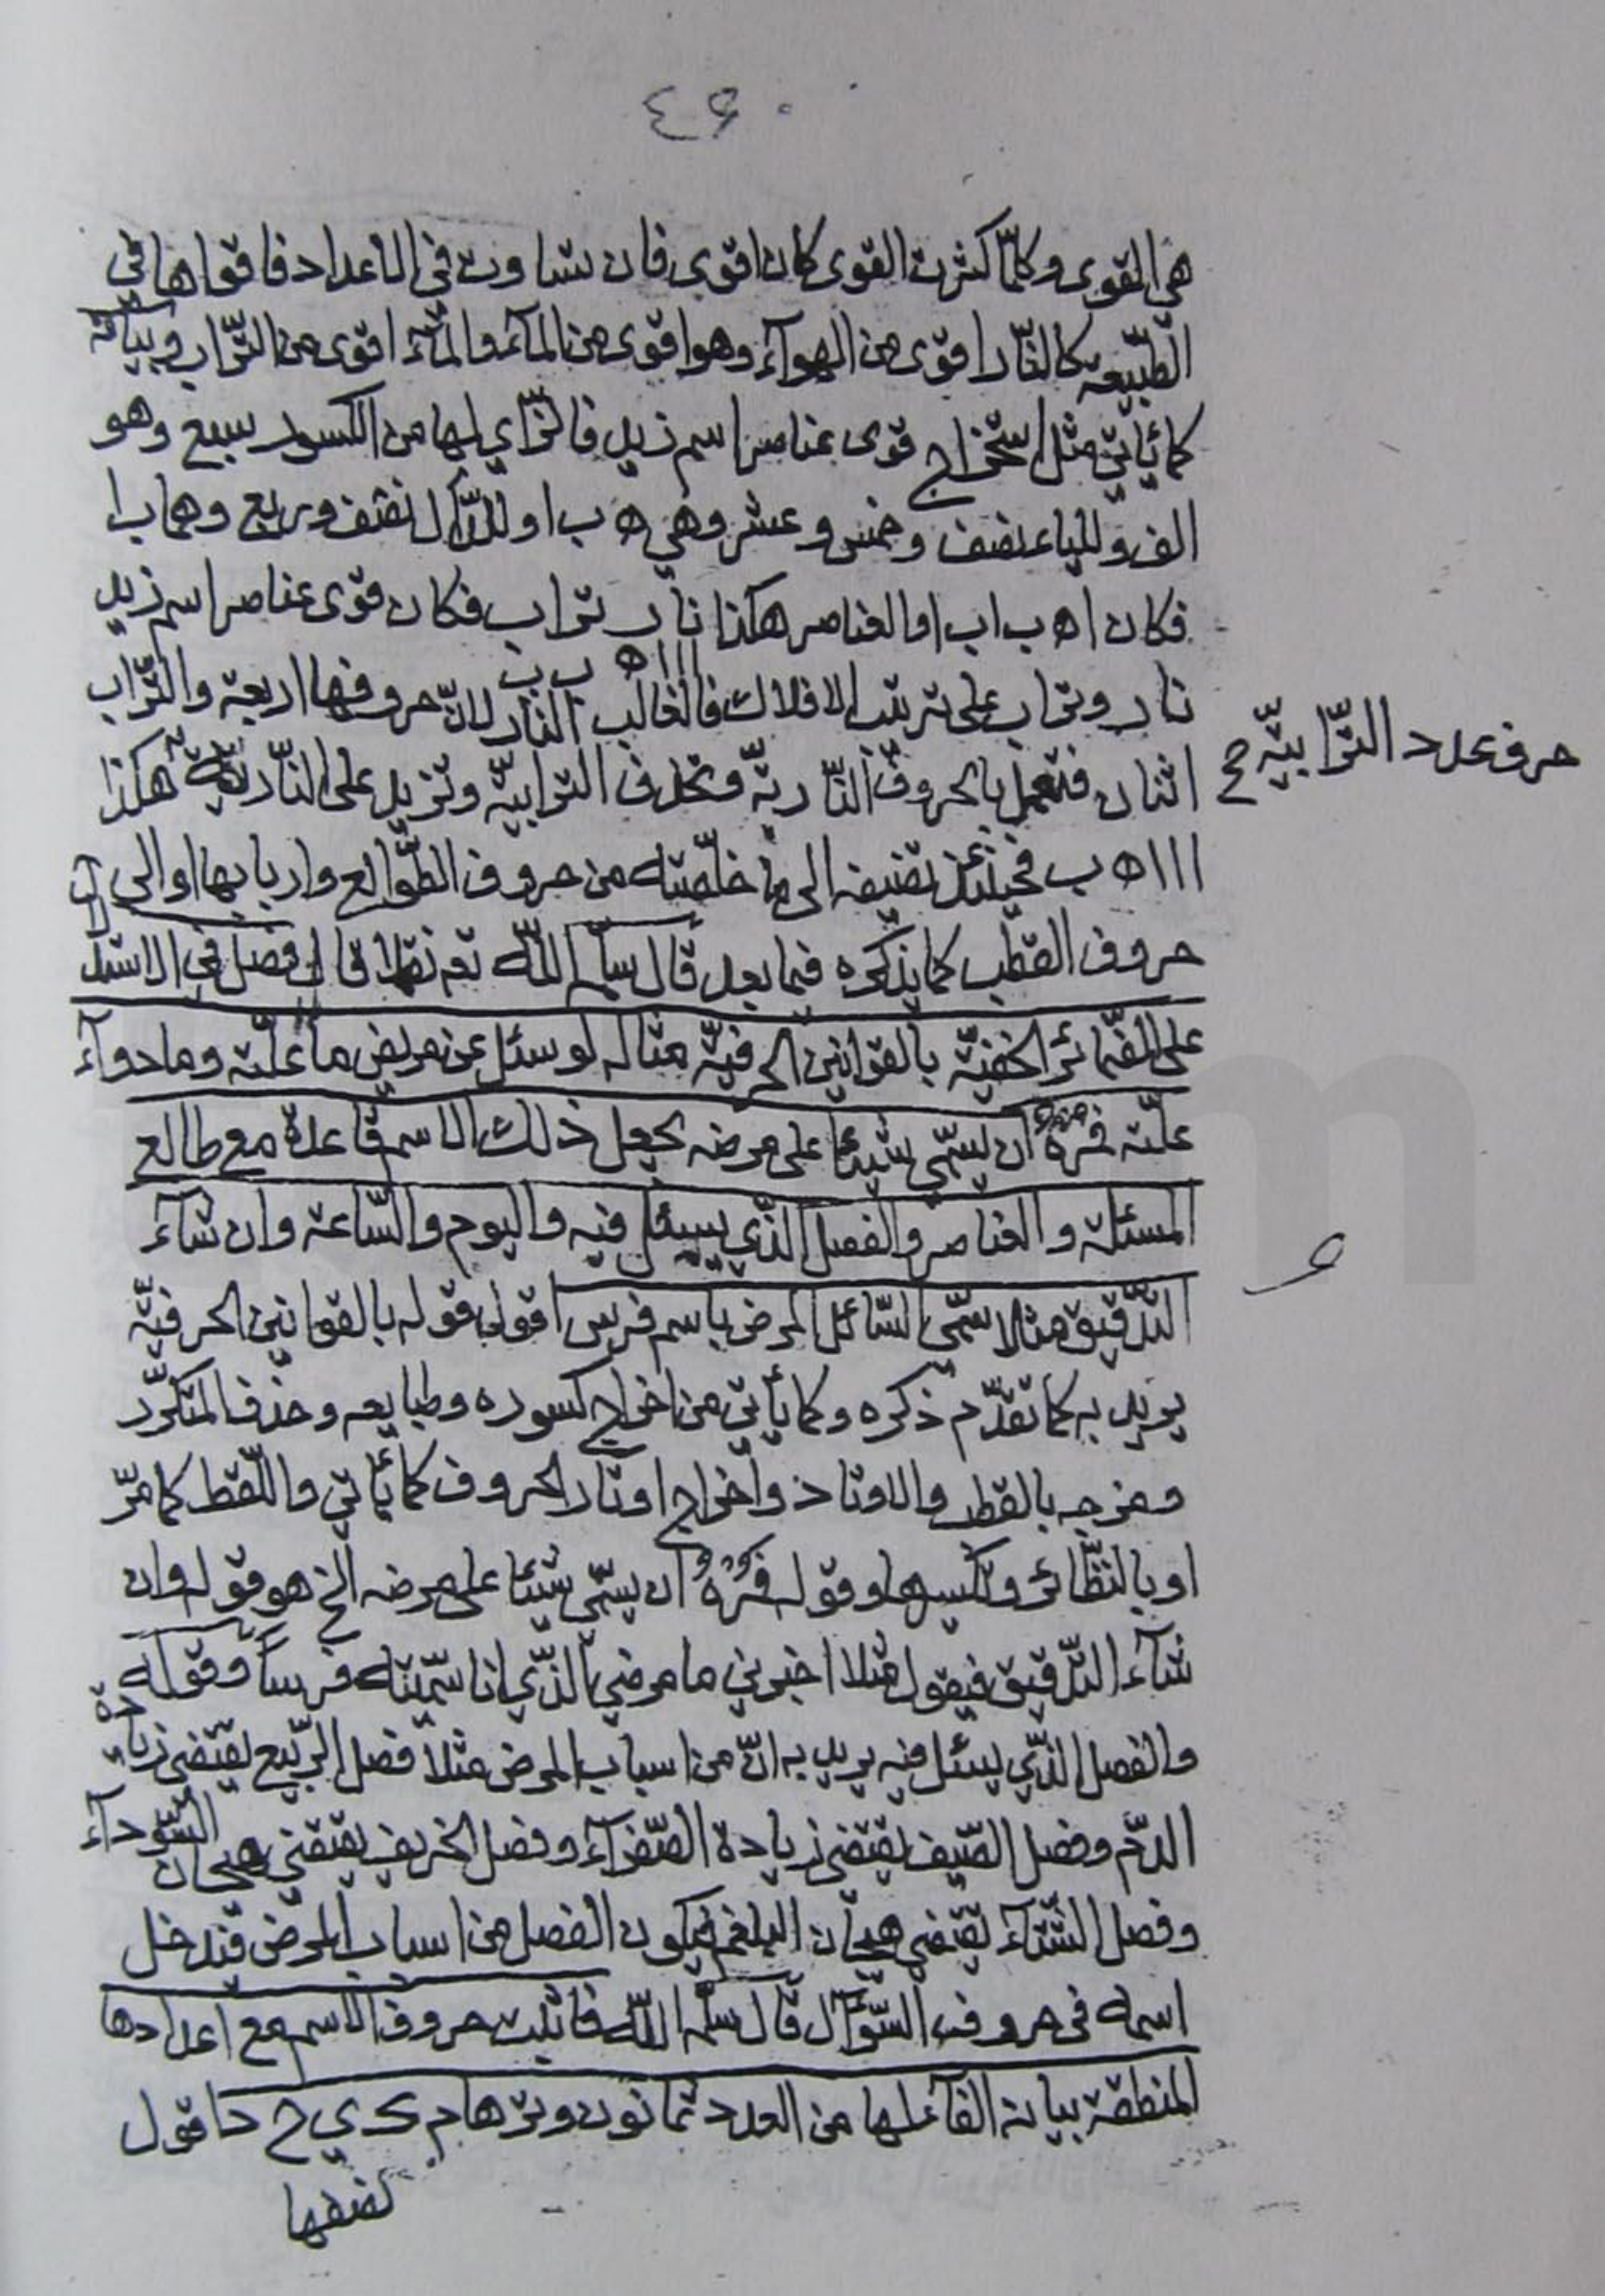 ٤٦٠
هي القوى وكلّما كثرت القوى كان اقوى فان تساوت في الاعداد فاقواها في
الطّبيعه كالنّار اقوى من الهوآء وهو اقوى من المآء والمآء اقوى من التّراب وبيانه
كما يأتي مثل استخراج قوى عناصر اسم زيد فالزّاي لها من الكسور سبع وهو
الف وللياء نصف وخمس وعشر وهي ه ب ا وللدّال نصف وربع وهما ب ا
فكان ا ه ب ا ب ا والعناصر هكذا نار تراب فكان قوى عناصر اسم زيد
ا ا ا ه ب ب
نار وتراب على ترتيب الافلاك فالغالب النار لانّ حروفها اربعة والتّراب
اثنان فتعمل بالحروف النّاريّة وتحذف الترابيّة وتزيد على النّاريّة هكذا
حرف عدد التّرابيّة ح
ا ا ا ه ب فحينئذ تضيفه الى ما خلّصته من حروف الطّوالع واربابها او الى
حروف القطب كما يذكره فيما بعد قال سلّمه اللّه تعم نقلا قال فصل في الاستدلال
على الضّمائر الخفيّة بالقوانين الحرفيّة مثاله لو سئل عن مريض ما علّته وما دوآء
علّته فمُرْهُ ان يسمّي شيئا على مرضه يجعل ذلك الاسم قاعدة مع طالع
المسئلة والعناصر والفصل الذّي يسئل فيه واليوم والسّاعة وان شآء
التّدقيق مثلا سمّى السّائل المرض باسم فرس اقول قوله بالقوانين الحرفيّة
يريد به كما تقدّم ذكره وكما يأتي من اخراج كسوره وطبايعه وحذف المتكرّر
ومزجه بالقطب والاوتاد واخراج اوتار الحروف كما يأتي واللّقط كما مرّ
او بالنّظائر وتكسيرها وقوله فمُرْهُ ان يسمّي شيئا على مرضه الخ هو قوله وان
شآء التّدقيق فيقول مثلا اخبرني ما مرضي الذّي انا سمّيته فرسا وقوله
والفصل الذّي يسئل فيه يريد به انّ من اسباب المرض مثلا فصل الرّبيع يقتضي زيادة
الدّم وفصل الصّيف يقتضي زيادة الصّفرآء وفصل الخريف يقتضي هيجان السّودآء
وفصل الشّتآء يقتضي هيجان البلغم فيكون الفصل من اسباب المرض فتدخل
اسمه في حروف السّؤال قال سلّمه اللّه فاثبت حروف الاسم مع اعدادها
المنطقة بيانه الفآء لها من العدد ثمانون وترها م ك ي ح د اقول
نصفها